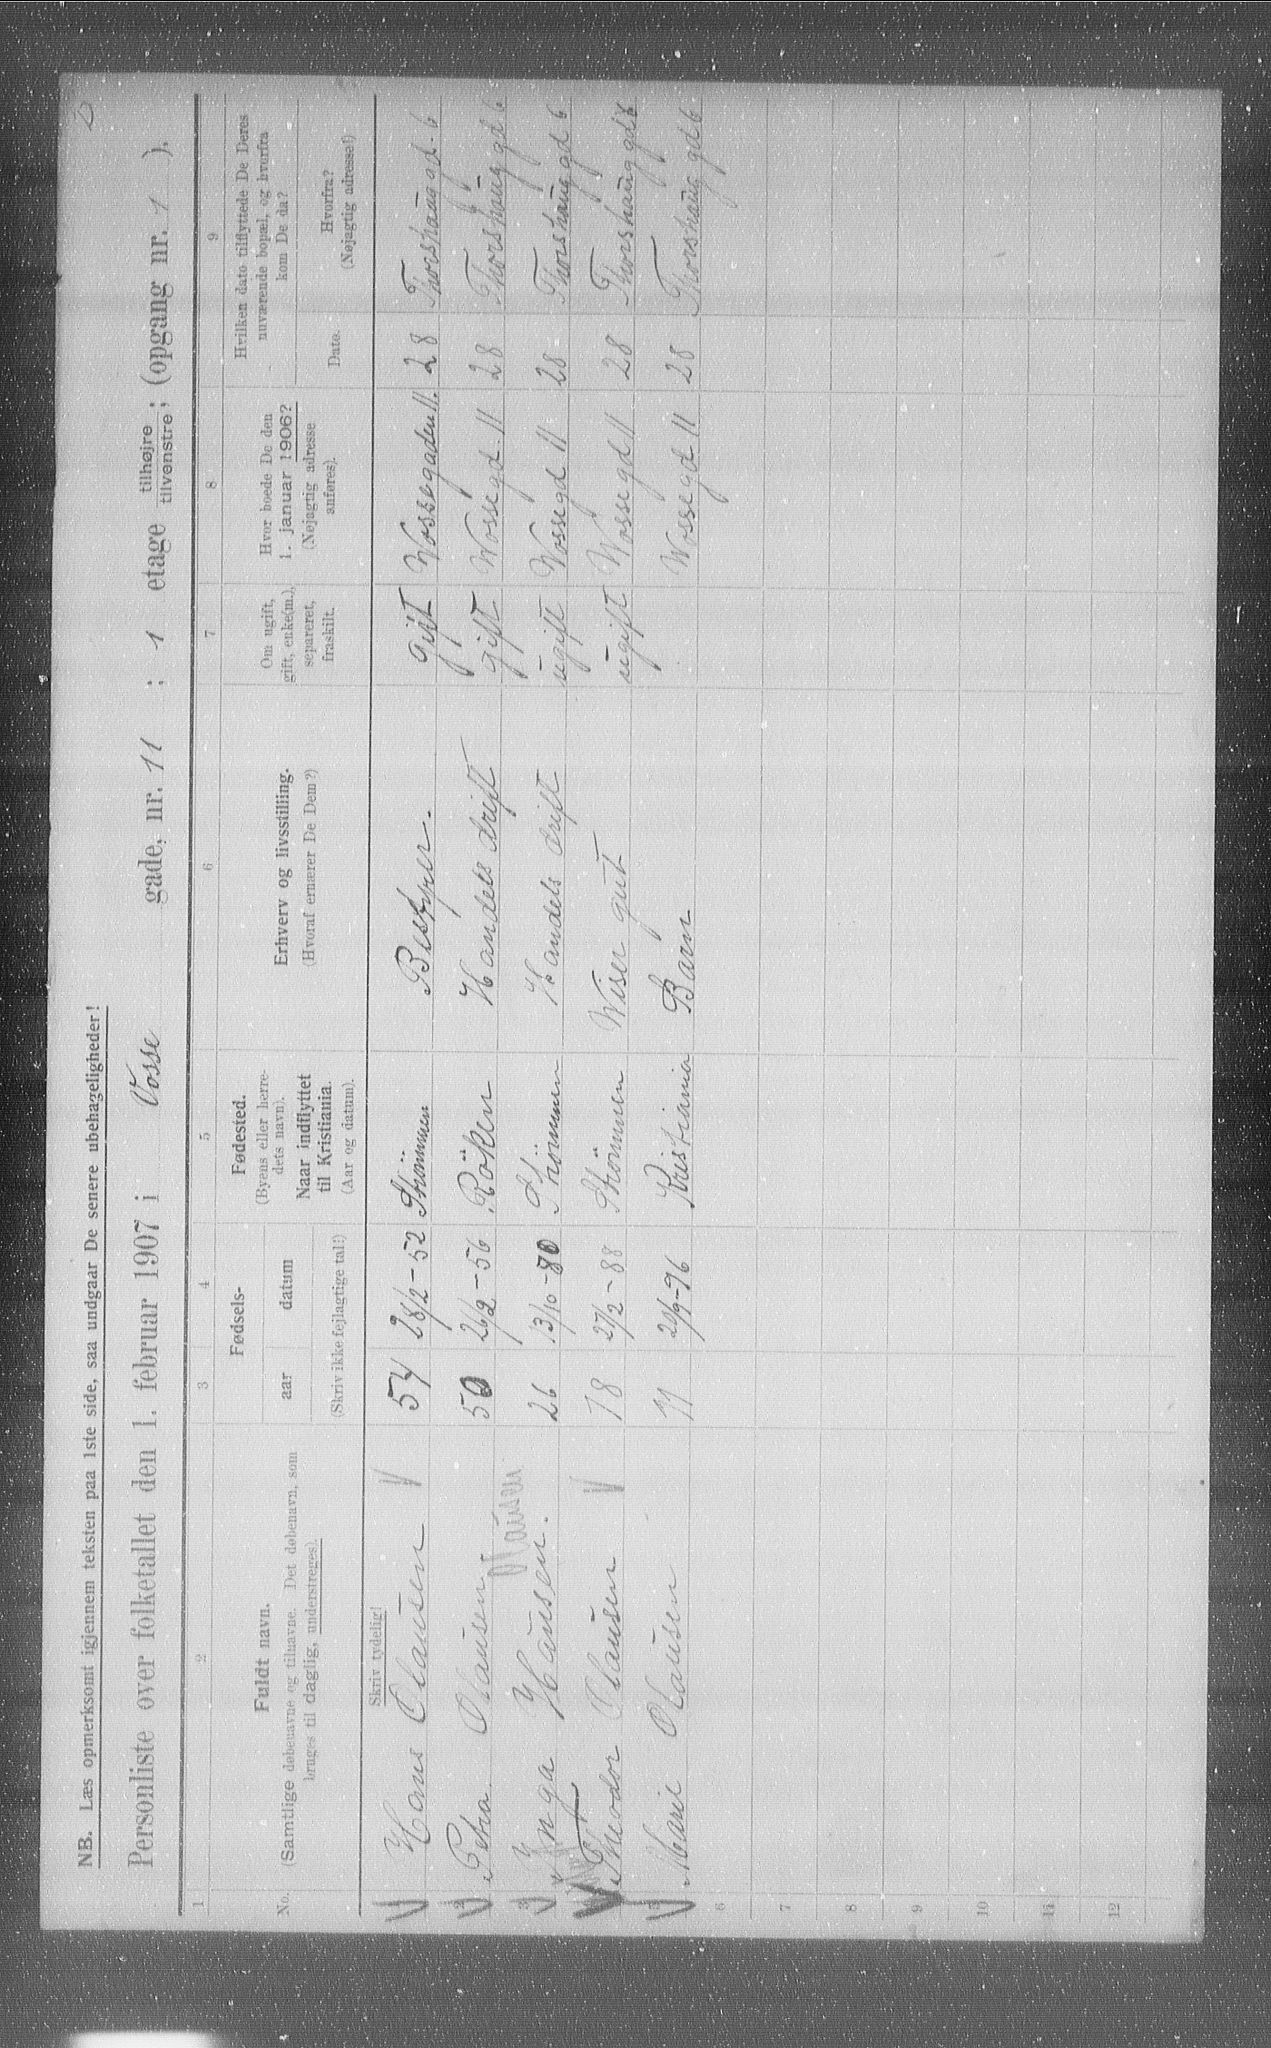 NB. Læs opmerksomt igjennem teksten paa 1ste side, saa undgaar De senere ubehageligheder!
Personliste over folketallet den 1. februar 1907 i Vosse gade, nr. 11 ; 1 etage tilhøjre tilvenstre ; (opgang nr. 1 ).
1 2 3 4 5 6 7 8 9
No. Fuldt navn. (Samtlige døbenavne og tilnavne. Det døbenavn, som bruges til daglig, understreges).
Fødsels- aar datum (Skriv ikke fejlagtige tal!)
Fødested. (Byens eller herredets navn). Naar indflyttet til Kristiania. (Aar og datum).
Erhverv og livsstilling. (Hvoraf ernærer De Dem?)
Om ugift, gift, enke(m.), separeret, fraskilt.
Hvor boede De den 1. januar 1906? (Nøjagtig adresse anføres).
Hvilken dato tilflyttede De Deres nuværende bopæl, og hvorfra kom De da?
Dato. Hvorfra? (Nøjagtig adresse!)
Skriv tydelig!
1 Hans Olausen 54 28/2-52 Strömmen Bestyrer. gift Wossegaden 11. 28 Thorshaug gd. 6
2 Petra Olausen 50 26/2-56 Röken Handels drift gift Wossegd. 11 28 Thorshaug gd 6
3 Inga Hansen. Olausen 26 13/10-80 Strömmen Handels drift ugift Vossegd 11 28 Thorshaug gd 6
4 Theodor Olausen 18 27/2-88 Strömmen Wiser gut ugift Wossegd 11 28 Thorshaug gd 6
5 Marie Olausen 11 24/9-96 Kristiania Barn Wossegd 11 28 Thorshaug gd 6
6
7
8
9
10
11
12